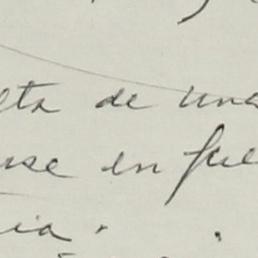 lta de una
rse en fue
ia.